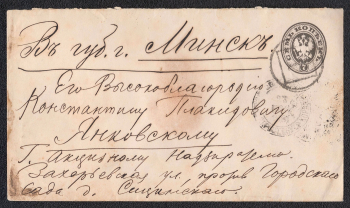 Въ губ. г. Минскъ
СЕМЬ КОПѢЕКЪ
Его Высокоблагородію
Константину Плакидовичу
Янковскому
Г. Акцизному Надзирателю.
Захарьевская ул. противъ Городскаго
сада д.